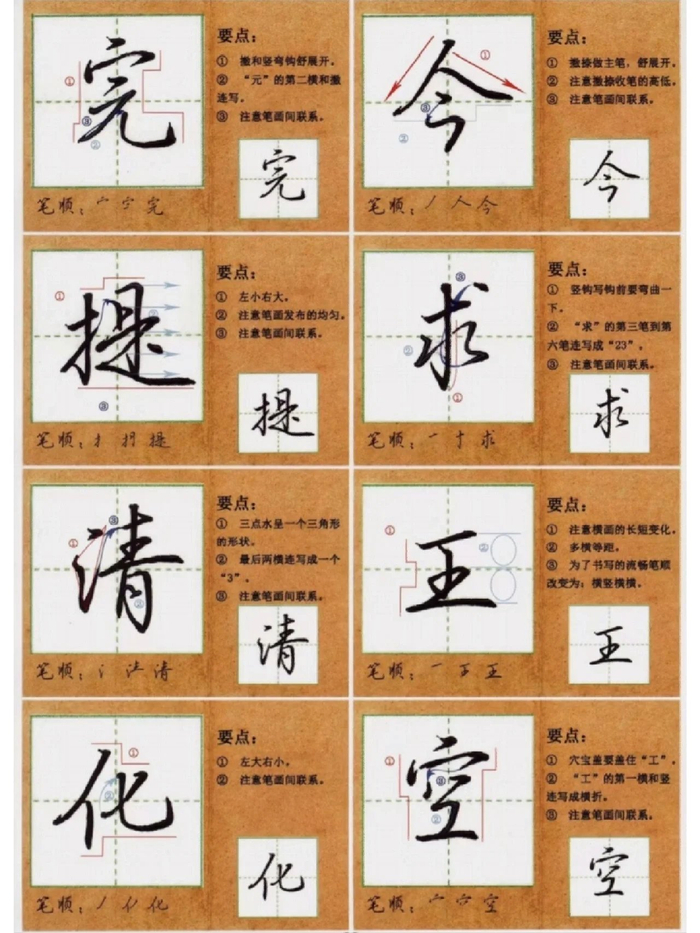 完
①
②
③
要点：
① 撇和竖弯钩舒展开。
② “元”的第二横和撇
连写。
③ 注意笔画间联系。
完
笔顺：完
今
①
②
③
要点：
① 撇捺做主笔，舒展开。
② 注意撇捺收笔的高低。
③ 注意笔画间联系。
今
笔顺：丿 人 今
提
①
②
③
要点：
① 左小右大。
② 注意笔画发布的均匀。
③ 注意笔画间联系。
提
笔顺：扌 提
求
①
②
③
要点：
① 竖钩写钩前要弯曲一
下。
② “求”的第三笔到第
六笔连写成“23”。
③ 注意笔画间联系。
求
笔顺：一 十 求
清
①
②
③
要点：
① 三点水呈一个三角形
的形状。
② 最后两横连写成一个
“3”。
③ 注意笔画间联系。
清
笔顺：氵 清
王
①
②
要点：
① 注意横画的长短变化。
② 多横等距。
③ 为了书写的流畅笔顺
改变为：横竖横横。
王
笔顺：一 王
化
①
②
要点：
① 左大右小。
② 注意笔画间联系。
化
笔顺：丿 亻 化
空
①
②
③
要点：
① 穴宝盖要盖住“工”。
② “工”的第一横和竖
连写成横折。
③ 注意笔画间联系。
空
笔顺：宀 空